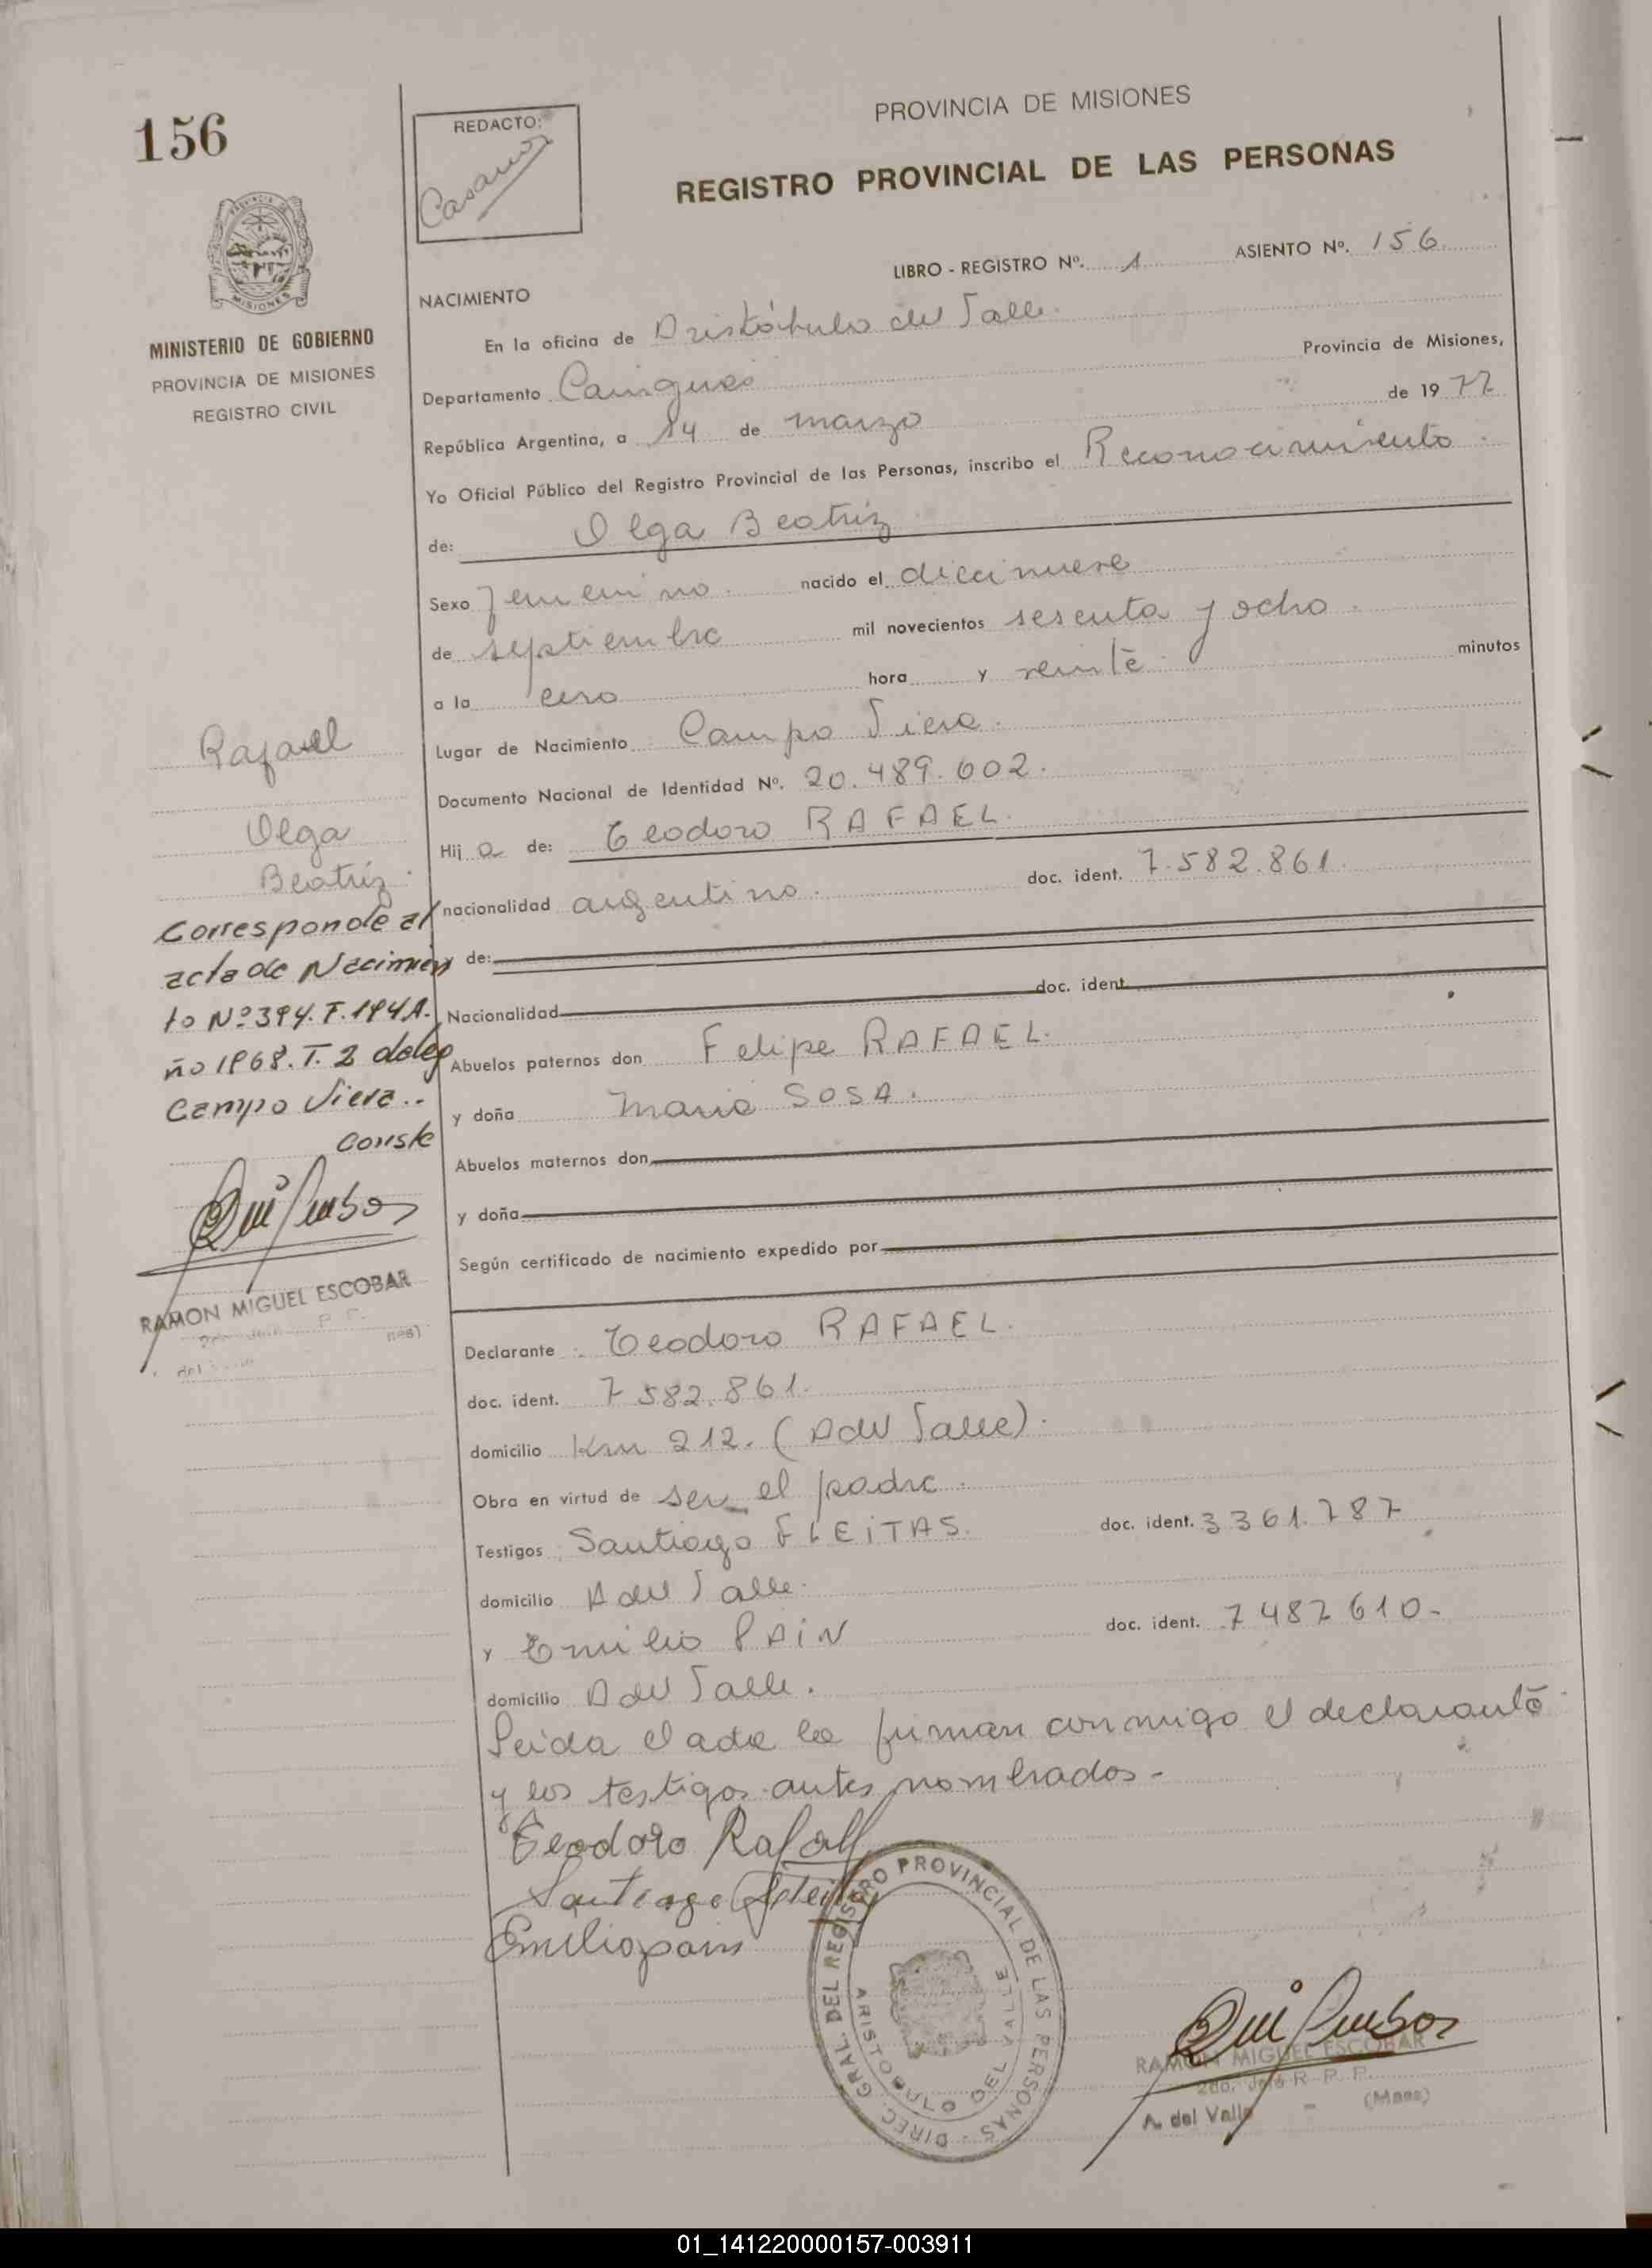 156
REDACTO:
PROVINCIA DE MISIONES
REGISTRO PROVINCIAL DE LAS PERSONAS
LIBRO - REGISTRO Nº. 1 ASIENTO Nº. 156
MISIONES
MINISTERIO DE GOBIERNO
PROVINCIA DE MISIONES
REGISTRO CIVIL
NACIMIENTO
En la oficina de Aristóbulo del Valle.
Departamento Cainguás Provincia de Misiones,
República Argentina, a 14 de marzo de 1977
Yo Oficial Público del Registro Provincial de las Personas, inscribo el Reconocimiento.
de: Olga Beatriz
Sexo Femenino. nacido el diecinueve
de septiembre mil novecientos sesenta y ocho.
a la cero hora y veinte minutos
Lugar de Nacimiento Campo Viera.
Documento Nacional de Identidad Nº. 20.489.602.
Hij a de: Teodoro RAFAEL.
nacionalidad argentino. doc. ident. 7.582.861.
y de:
Nacionalidad doc. ident.
Abuelos paternos don Felipe RAFAEL.
y doña María SOSA.
Abuelos maternos don
y doña
Según certificado de nacimiento expedido por
Rafael
Olga
Beatriz.
Corresponde al
acta de Nacimien
to Nº 394. F. 194 A.
ño 1968. T. 2 deleg
Campo Viera..
conste
RAMON MIGUEL ESCOBAR
Declarante: Teodoro RAFAEL.
doc. ident. 7 582.861.
domicilio Km 212. (A del Valle).
Obra en virtud de ser el padre.
Testigos Santiago FLEITAS. doc. ident. 3 361.787
domicilio A del Valle.
y Emilio PAIN doc. ident. 7 487 610-
domicilio A del Valle.
Leida el acta la firman conmigo el declarante
y los testigos antes nombrados-
Teodoro Rafael
Santiago Fleitas
Emilio pain
DIREC. GRAL. DEL REGISTRO PROVINCIAL DE LAS PERSONAS -
ARISTOBULO DEL VALLE
RAMON MIGUEL ESCOBAR
2do. Jefe R. P. P.
A. del Valle - (Mnes)
01_141220000157-003911